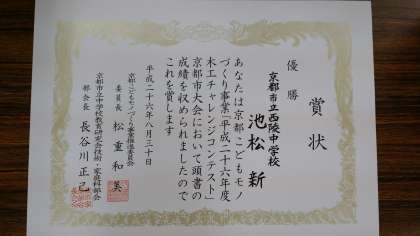 賞状
優勝
京都市立西陵中学校
池松新
あなたは京都こどもモノ
づくり事業「平成二十六年度
木工チャレンジコンテスト」
京都市大会において頭書の
成績を収められましたので
これを賞します
平成二十六年八月三十日
京都こどもモノづくり事業推進委員会
委員長 松重和美
京都市立中学校教育研究会技術・家庭科部会
部会長 長谷川正巳